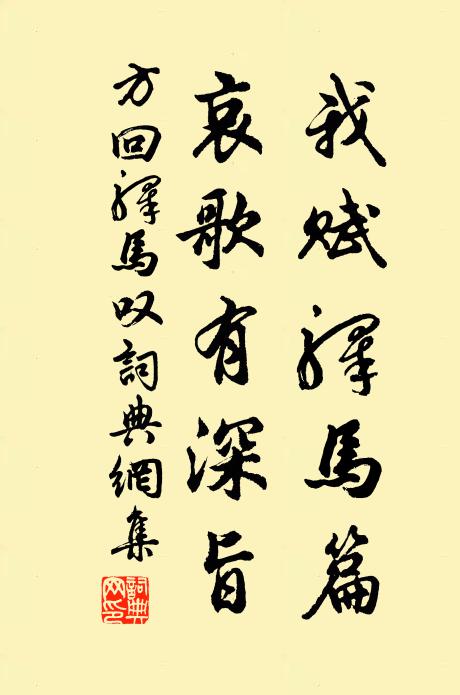 我賦驛馬篇
哀歌有深旨
方回驛馬叹詞典網集
詞典
网印